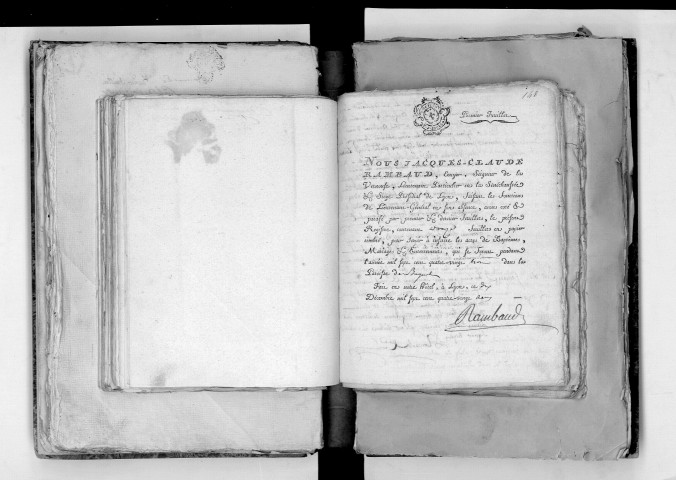 148
Premier Feuillet
NOUS JACQUES-CLAUDE
RAMBAUD, Ecuyer, Seigneur de la
Vernouse, Lieutenant Particulier en la Sénéchaussée
& Siege Présidial de Lyon, faisant les fonctions
de Lieutenant-Général en son absence, avons coté &
paraphé par premier & dernier Feuillets, le présent
Registre, contenant onze Feuillets en papier
timbré, pour servir à inscrire les actes de Baptêmes,
Mariages & Enterremens, qui se feront pendant
l'année mil sept cent quatre-vingt trois dans la
Paroisse de
Fait en notre Hôtel, à Lyon, ce
Décembre mil sept cent quatre-vingt deux
Rambaud